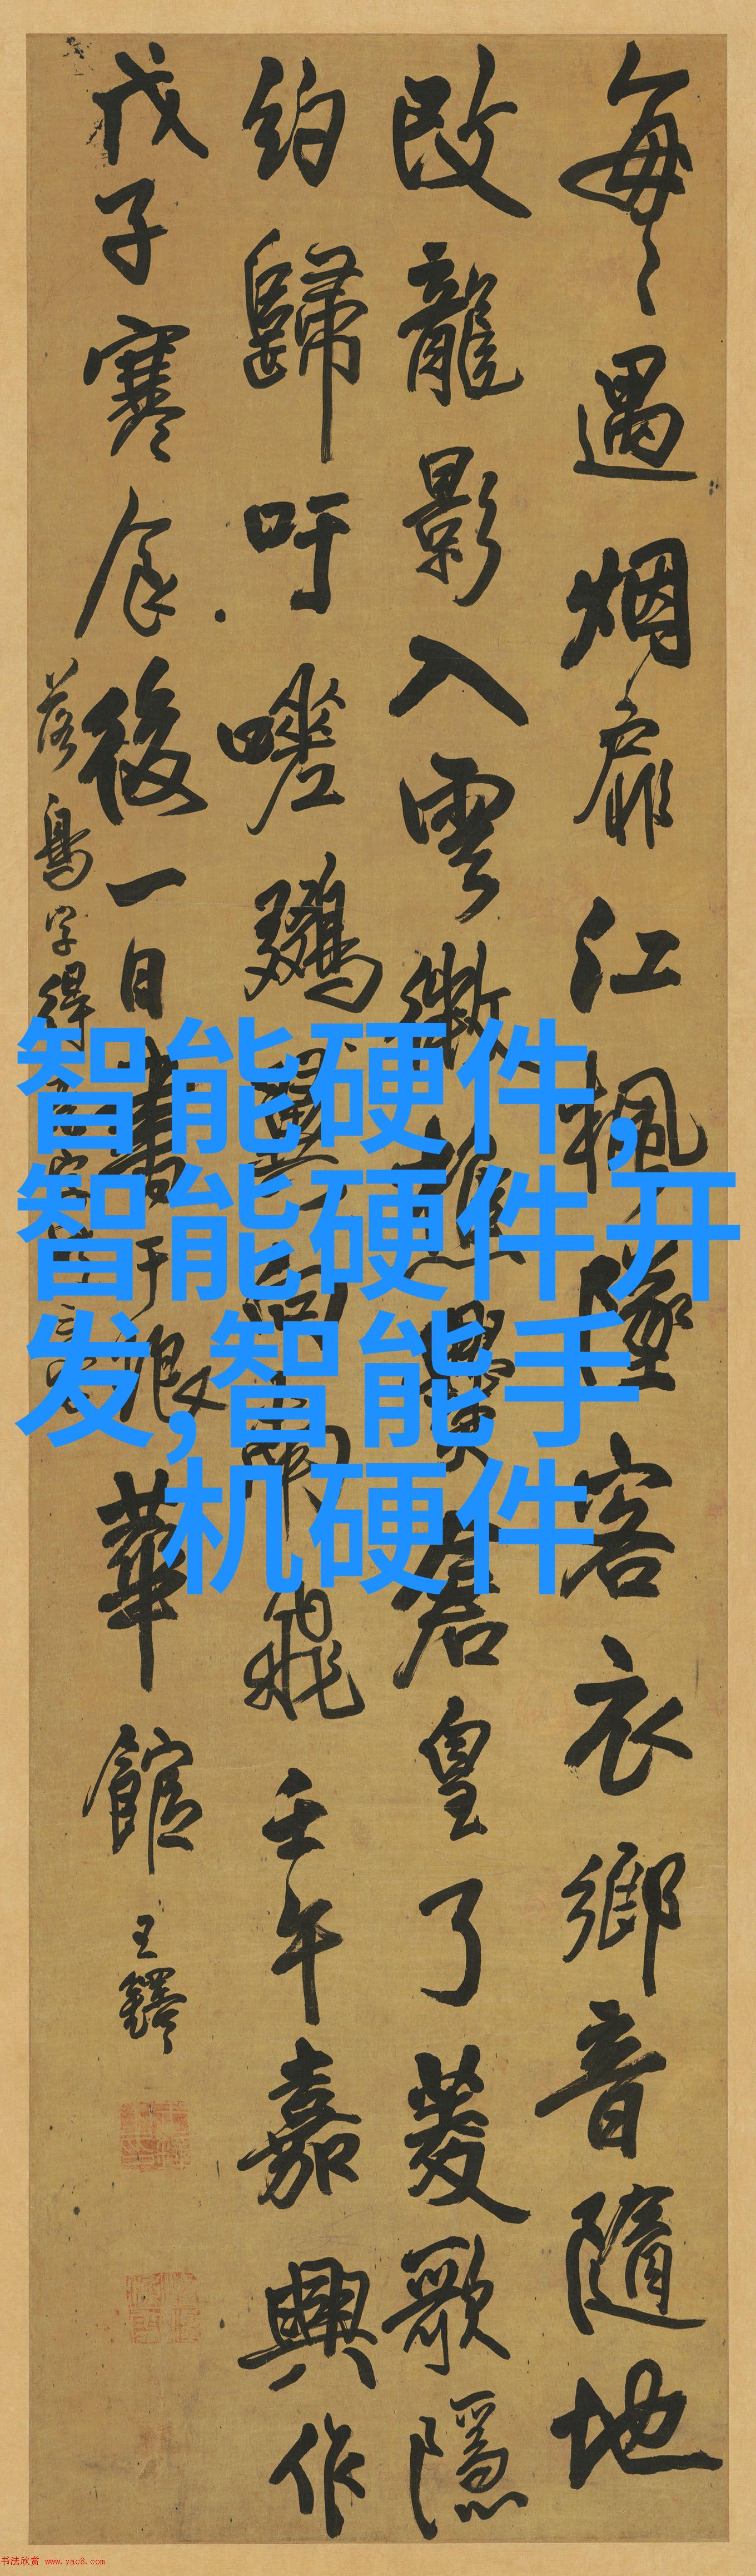 智能硬件,
智能硬件开
发,智能手
机硬件
每々遇烟扉江楓墜客衣鄉音隨地
改龍影入雲微樵爨倉皇了菱歌隱
約歸吁嗟向南飛壬午嘉興作
戊子寒食後一日書于琅華館王鐸
落鳥字得
书法欣赏 www.yac8.com